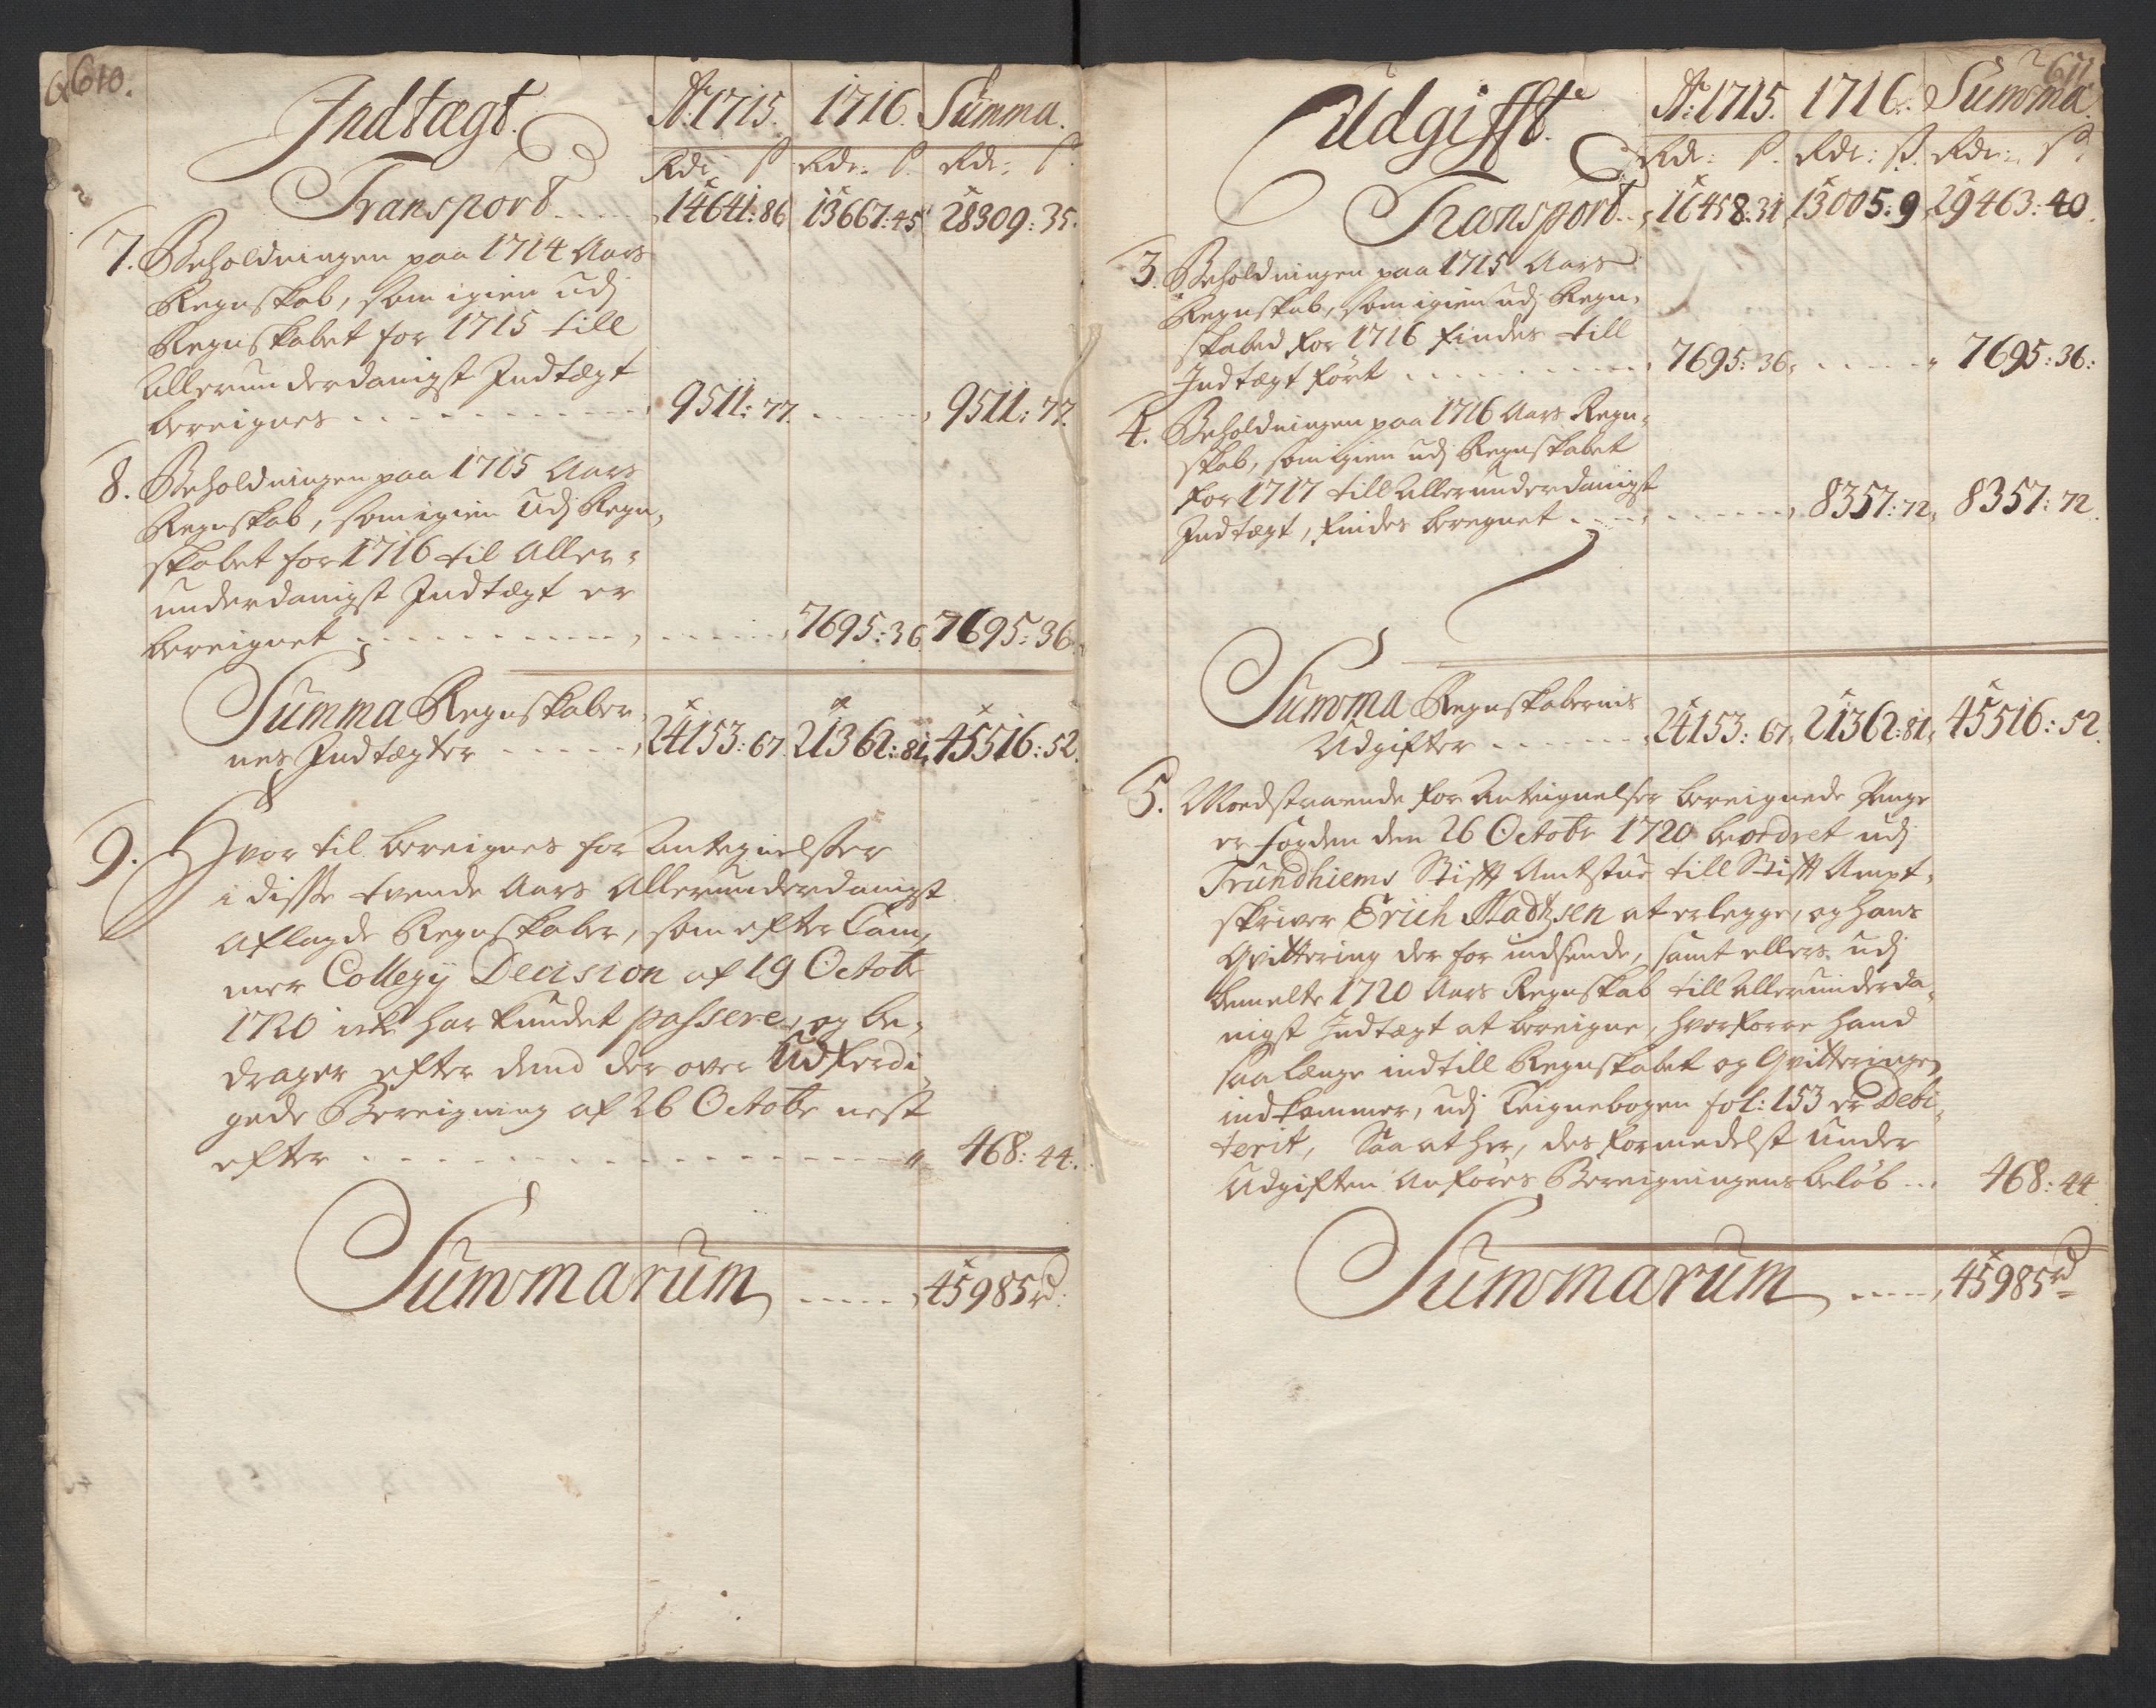 610.
Indtægt. Ao: 1715. 1716. Summa.
Rdr: ß. Rdr: ß. Rdr: ß.
Transport ..... 14641: 86. 13667: 45. 28309: 35.
7. Beholdningen paa 1714 Aars
Regnskab, som igien udj
Regnskabet for 1715 till
Allerunderdanigst Indtægt
bereignes .......... 9511: 77. ...... 9511: 77.
8. Beholdningen paa 1715 Aars
Regnskab, som igien Udj Regn„
skabet for 1716 til Aller„
underdanigst Indtægt er
bereignet .......... ...... 7695: 36. 7695: 36.
Summa Regnskaber„
nes Indtægter ..... 24153: 67. 21362: 81. 45516: 52.
9. Hvor til bereignes for Antegnelsser
i disse tvende Aars Allerunderdanigst
Aflagde Regnskaber, som efter Cam„
mer Collegij Decision af 19 Octobr
1720 icke har kundet passere, og be„
drager efter dend der over Udferdi„
gede Bereigning af 26 Octobr nest
efter .................. 468: 44.
Summarum ..... 45985 rd:
611.
Udgifft. Ao: 1715. 1716. Summa.
Rdr: ß. Rdr: ß. Rdr: ß.
Transport .. 16458: 31. 13005: 9. 29463: 40.
3. Beholdningen paa 1715 Aars
Regnskab, som igien udj Regn„
skabed for 1716 findes till
Indtægt ført .......... 7695: 36. ...... 7695: 36:
4. Beholdningen paa 1716 Aars Regn„
skab, som igien udj Regnskabet
for 1717 till Allerunderdanigst
Indtægt, findes beregnet ..... ...... 8357: 72. 8357: 72.
Summa Regnskabernis
Udgifter ....... 24153: 67. 21362: 81. 45516: 52.
5. Modstaaende for Antegnelser bereignede Penge
er forden den 26 Octobr 1720 beordret udj
Trundhiems Stift Amtstue till Stift Ampt„
skriver Erich Madtzsen at erlegge, og hans
Qvittering der for indsende, samt ellers udj
bemelte 1720 Aars Regnskab till Allerunderda„
nigst Indtægt at bereigne, hvorforre hand
saa længe indtill Regnskabet og Qvitteringen
indkommer, udj Teignebogen fol: 153 er Debi„
terit, Saa at her, des formedelst under
Udgiften Anføres Bereigningens beløb ... 468: 44
Summarum ..... 45985 rd